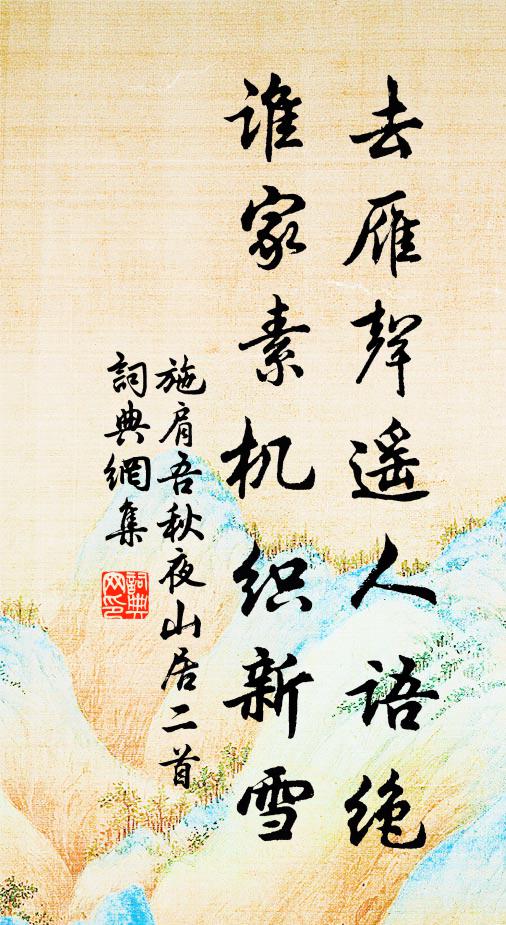 去雁聲遥人语绝
谁家素机织新雪
施肩吾秋夜山居二首
詞典網集
詞典
网印